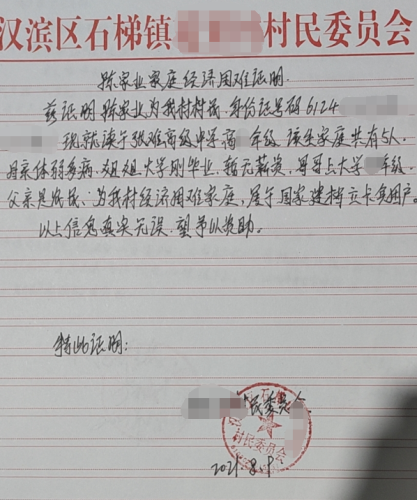 汉滨区石梯镇 村民委员会
陈家业家庭经济困难证明.
兹证明 陈家业为我村村民 身份证号码6124
现就读于张滩高级中学高 年级 该生家庭共有5人,
母亲体弱多病,姐姐大学刚毕业,暂无薪资,哥哥上大学 年级,
父亲是残疾.为我村经济困难家庭,属于国家建档立卡贫困户.
以上信息真实无误.望予以资助.
特此证明:
民委员
村民委员会
2021.8.9